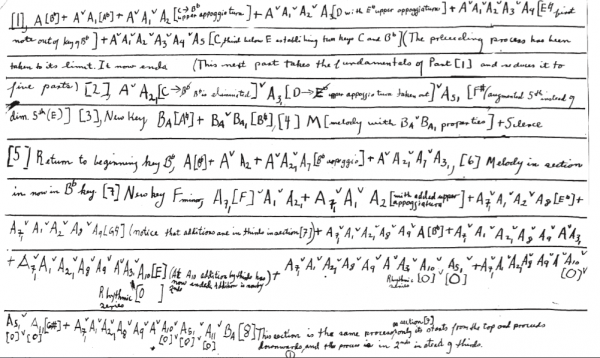 [1], A [B♭] + A ˅ A₁ [A♭] + A ˅ A₁ ˅ A₂ [C→B♭ upper appoggiatura] + A ˅ A₁ ˅ A₂ ˅ A₃ [D with E♭ upper appoggiatura] + A ˅ A₁ ˅ A₂ ˅ A₃ ˅ A₄ [E♮ first
note out of key of B♭] + A ˅ A₁ ˅ A₂ ˅ A₃ ˅ A₄ ˅ A₅ [C, third below E establishing two keys C and B♭] (The preceeding process has been
taken to its limit. It now ends (This next part takes the fundamentals of Part [1] and reduces it to
five parts) [2], A ˅ A₂₁ [C→B♭ is eliminated] ˅ A₃₁ [D→E♭ upper appoggiatura taken out] ˅ A₅₁ [F# (augmented 5th instead of
dim. 5th (E)] [3], New Key B_A [A♭] + B_A ˅ B_A₁ [B♭], [4] M [melody with B_A ˅ B_A₁ properties] + Silence
[5] Return to beginning key B♭, A [B♭] + A ˅ A₂ + A ˅ A₂₁ ˅ A₇ [B♭ appoggio] + A ˅ A₂₁ ˅ A₇ ˅ A₃₁, [6] Melody in section
in now in B♭ key. [7] New key F minor, A₇₁ [F] ˅ A₁ ˅ A₂₁ + A₇₁ ˅ A₁ ˅ A₂ [with added upper appoggiatura] + A₇₁ ˅ A₁ ˅ A₂ ˅ A₈ [E♭] +
A₇₁ ˅ A₁ ˅ A₂ ˅ A₈ ˅ A₉ [G♮] (notice that additions are in thirds in section [7]) + A₇₁ ˅ A₁ ˅ A₂₁ ˅ A₈ ˅ A₉ ˅ A [B♭] + A₇₁ ˅ A₁ ˅ A₂₁ ˅ A₈ ˅ A₉ ˅ A ˅ A₃₁
+ A₇₁ ˅ A₁ ˅ A₂₁ ˅ A₈ ˅ A₉ ˅ A ˅ A₃₁ ˅ A₁₀ [E] (At A₁₀ addition by thirds has now ended. Addition is now by + A₇₁ ˅ A₁ ˅ A₂₁ ˅ A₈ ˅ A₉ ˅ A ˅ A₃ ˅ A₁₀ ˅ A₅₁ + A₇₁ ˅ A₁ ˅ A₂₁ ˅ A₈ ˅ A₉ ˅ A ˅ A₁₀
Rhythmic series [0] Rhythmic [0] ˅ [0] [0] ˅
A₅₁ ˅ A₁₁ [G#] + A₇₁ ˅ A₁ ˅ A₂₁ ˅ A₈ ˅ A₉ ˅ A ˅ A₁₀ ˅ A₅₁ ˅ A₁₁ ˅ B_A [8] This section is the same process as section [7] only it starts from the top and proceeds
[0] [0] [0] ˅ [0] ˅ [0] downwards, and the process is in 2nds instead of thirds.
①